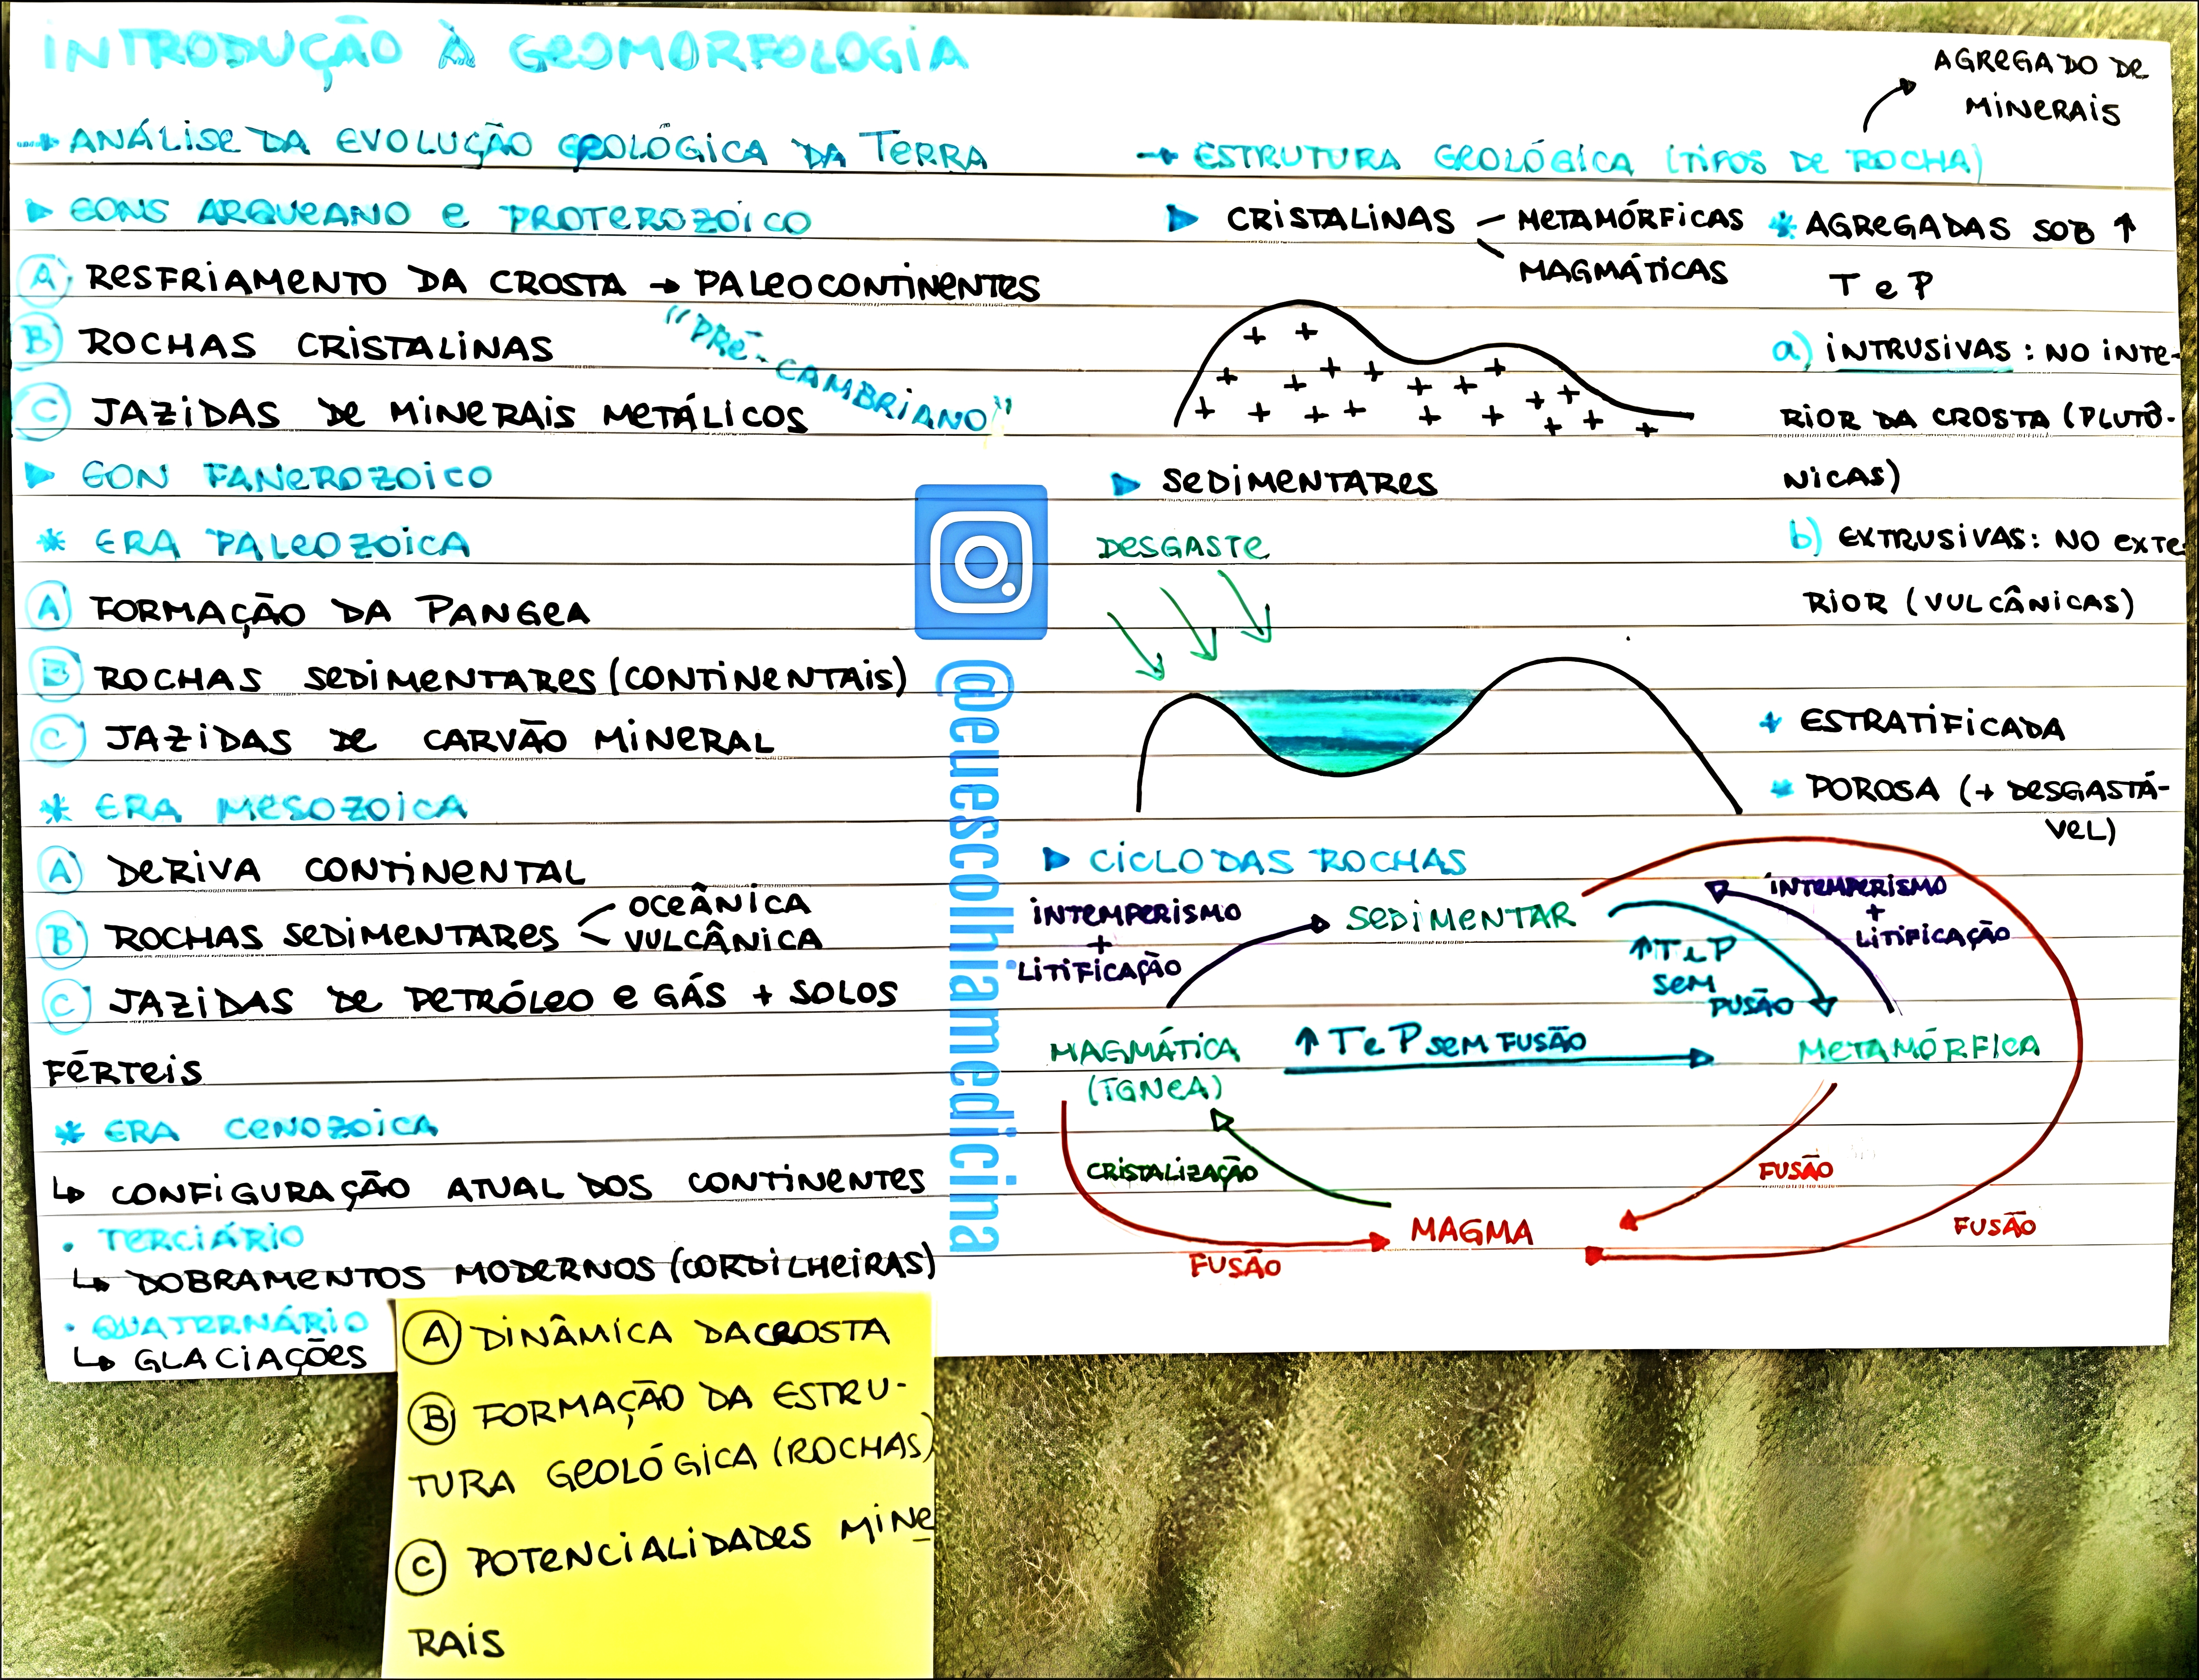 INTRODUÇÃO À GEOMORFOLOGIA
→ ANÁLISE DA EVOLUÇÃO GEOLÓGICA DA TERRA
▶ EONS ARQUEANO E PROTEROZÓICO
Ⓐ RESFRIAMENTO DA CROSTA → PALEOCONTINENTES
Ⓑ ROCHAS CRISTALINAS
"PRÉ-CAMBRIANO"
Ⓒ JAZIDAS DE MINERAIS METÁLICOS
▶ EON FANEROZOICO
* ERA PALEOZOICA
Ⓐ FORMAÇÃO DA PANGEA
Ⓑ ROCHAS SEDIMENTARES (CONTINENTAIS)
Ⓒ JAZIDAS DE CARVÃO MINERAL
* ERA MESOZOICA
Ⓐ DERIVA CONTINENTAL
Ⓑ ROCHAS SEDIMENTARES
OCEÂNICA
VULCÂNICA
Ⓒ JAZIDAS DE PETRÓLEO E GÁS + SOLOS
FÉRTEIS
* ERA CENOZOICA
↳ CONFIGURAÇÃO ATUAL DOS CONTINENTES
• TERCIÁRIO
↳ DOBRAMENTOS MODERNOS (CORDILHEIRAS)
• QUATERNÁRIO
↳ GLACIAÇÕES
Ⓐ DINÂMICA DA CROSTA
Ⓑ FORMAÇÃO DA ESTRU-
TURA GEOLÓGICA (ROCHAS)
Ⓒ POTENCIALIDADES MINE
RAIS
@euescolhiamedicina
AGREGADO DE
MINERAIS
→ ESTRUTURA GEOLÓGICA (TIPOS DE ROCHA)
▶ CRISTALINAS — METAMÓRFICAS
MAGMÁTICAS
* AGREGADAS SOB ↑
T e P
a) INTRUSIVAS: NO INTE-
RIOR DA CROSTA (PLUTÔ-
NICAS)
b) EXTRUSIVAS: NO EXTE
RIOR (VULCÂNICAS)
▶ SEDIMENTARES
DESGASTE
* ESTRATIFICADA
* POROSA (+ DESGASTÁ-
VEL)
▶ CICLO DAS ROCHAS
INTEMPERISMO
+
LITIFICAÇÃO
SEDIMENTAR
↑ T e P
SEM
FUSÃO
INTEMPERISMO
+
LITIFICAÇÃO
MAGMÁTICA
(IGNEA)
↑ T e P SEM FUSÃO
METAMÓRFICA
CRISTALIZAÇÃO
FUSÃO
MAGMA
FUSÃO
FUSÃO